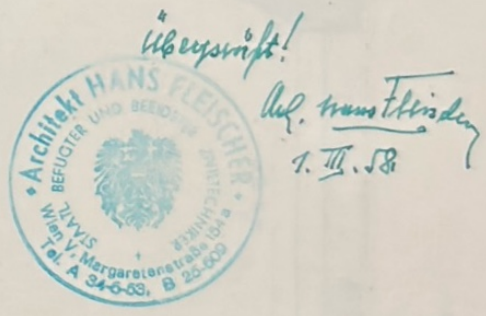 Überprüft!
Arch. Hans Fleischer
1. III. 58.
Architekt HANS FLEISCHER
STAATL. BEFUGTER UND BEEIDETER ZIVILTECHNIKER
Wien V, Margaretenstraße 154a
Tel. A 34-5-53, B 25-500